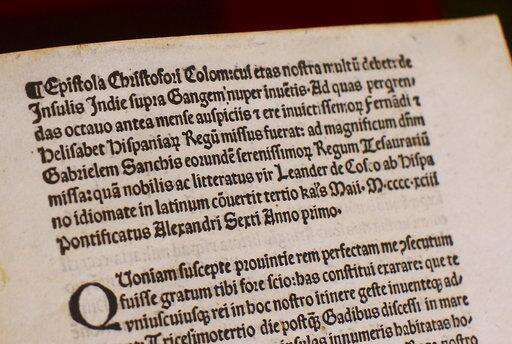 ¶ Epistola Christofori Colom: cui etas nostra multū debet: de
Insulis Indie supra Gangem nuper inuētis. Ad quas perqren-
das octauo antea mense auspiciis ⁊ ere inuictissemoꝝ Fernādi ⁊
Helisabet Hispaniaꝝ Regū missus fuerat: ad magnificum dñm
Gabrielem Sanchis eorundē serenissimoꝝ Regum Tesaurariū
missa: quā nobilis ac litteratus vir Leander de Cosco ab Hispa
no idiomate in latinum cōuertit tertio kaľs Maii. M.cccc.xciii
Pontificatus Alexandri Sexti Anno primo.
Quoniam suscepte prouintie rem perfectam me ꝯsecutum
fuisse gratum tibi fore scio: has constitui exarare: que te
vniuscuiusqꝫ rei in hoc nostro itinere geste inuenteqꝫ ad-
Tricesimotertio die postqꝫ Gadibus discessi in mare
insulas innumeris habitatas ho-
nostro